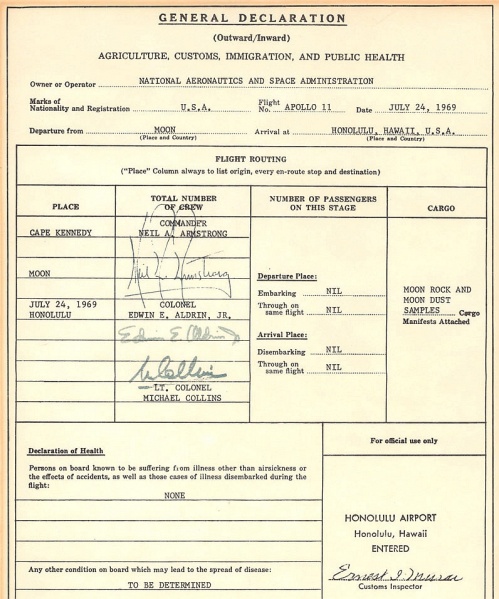 GENERAL DECLARATION
(Outward/Inward)
AGRICULTURE, CUSTOMS, IMMIGRATION, AND PUBLIC HEALTH
Owner or Operator NATIONAL AERONAUTICS AND SPACE ADMINISTRATION
Marks of
Nationality and Registration U.S.A. Flight No. APOLLO 11 Date JULY 24, 1969
Departure from MOON Arrival at HONOLULU, HAWAII, U.S.A.
(Place and Country) (Place and Country)
FLIGHT ROUTING
("Place" Column always to list origin, every en-route stop and destination)
PLACE
TOTAL NUMBER
OF CREW
NUMBER OF PASSENGERS
ON THIS STAGE
CARGO
CAPE KENNEDY
COMMANDER
NEIL A. ARMSTRONG
MOON
Neil A. Armstrong
JULY 24, 1969
HONOLULU
COLONEL
EDWIN E. ALDRIN, JR.
Edwin E Aldrin Jr
M Collins
LT. COLONEL
MICHAEL COLLINS
Departure Place:
Embarking NIL
Through on
same flight NIL
Arrival Place:
Disembarking NIL
Through on
same flight NIL
MOON ROCK AND
MOON DUST
SAMPLES Cargo
Manifests Attached
Declaration of Health
Persons on board known to be suffering from illness other than airsickness or
the effects of accidents, as well as those cases of illness disembarked during the
flight:
NONE
Any other condition on board which may lead to the spread of disease:
TO BE DETERMINED
For official use only
HONOLULU AIRPORT
Honolulu, Hawaii
ENTERED
Ernest I. Murai
Customs Inspector